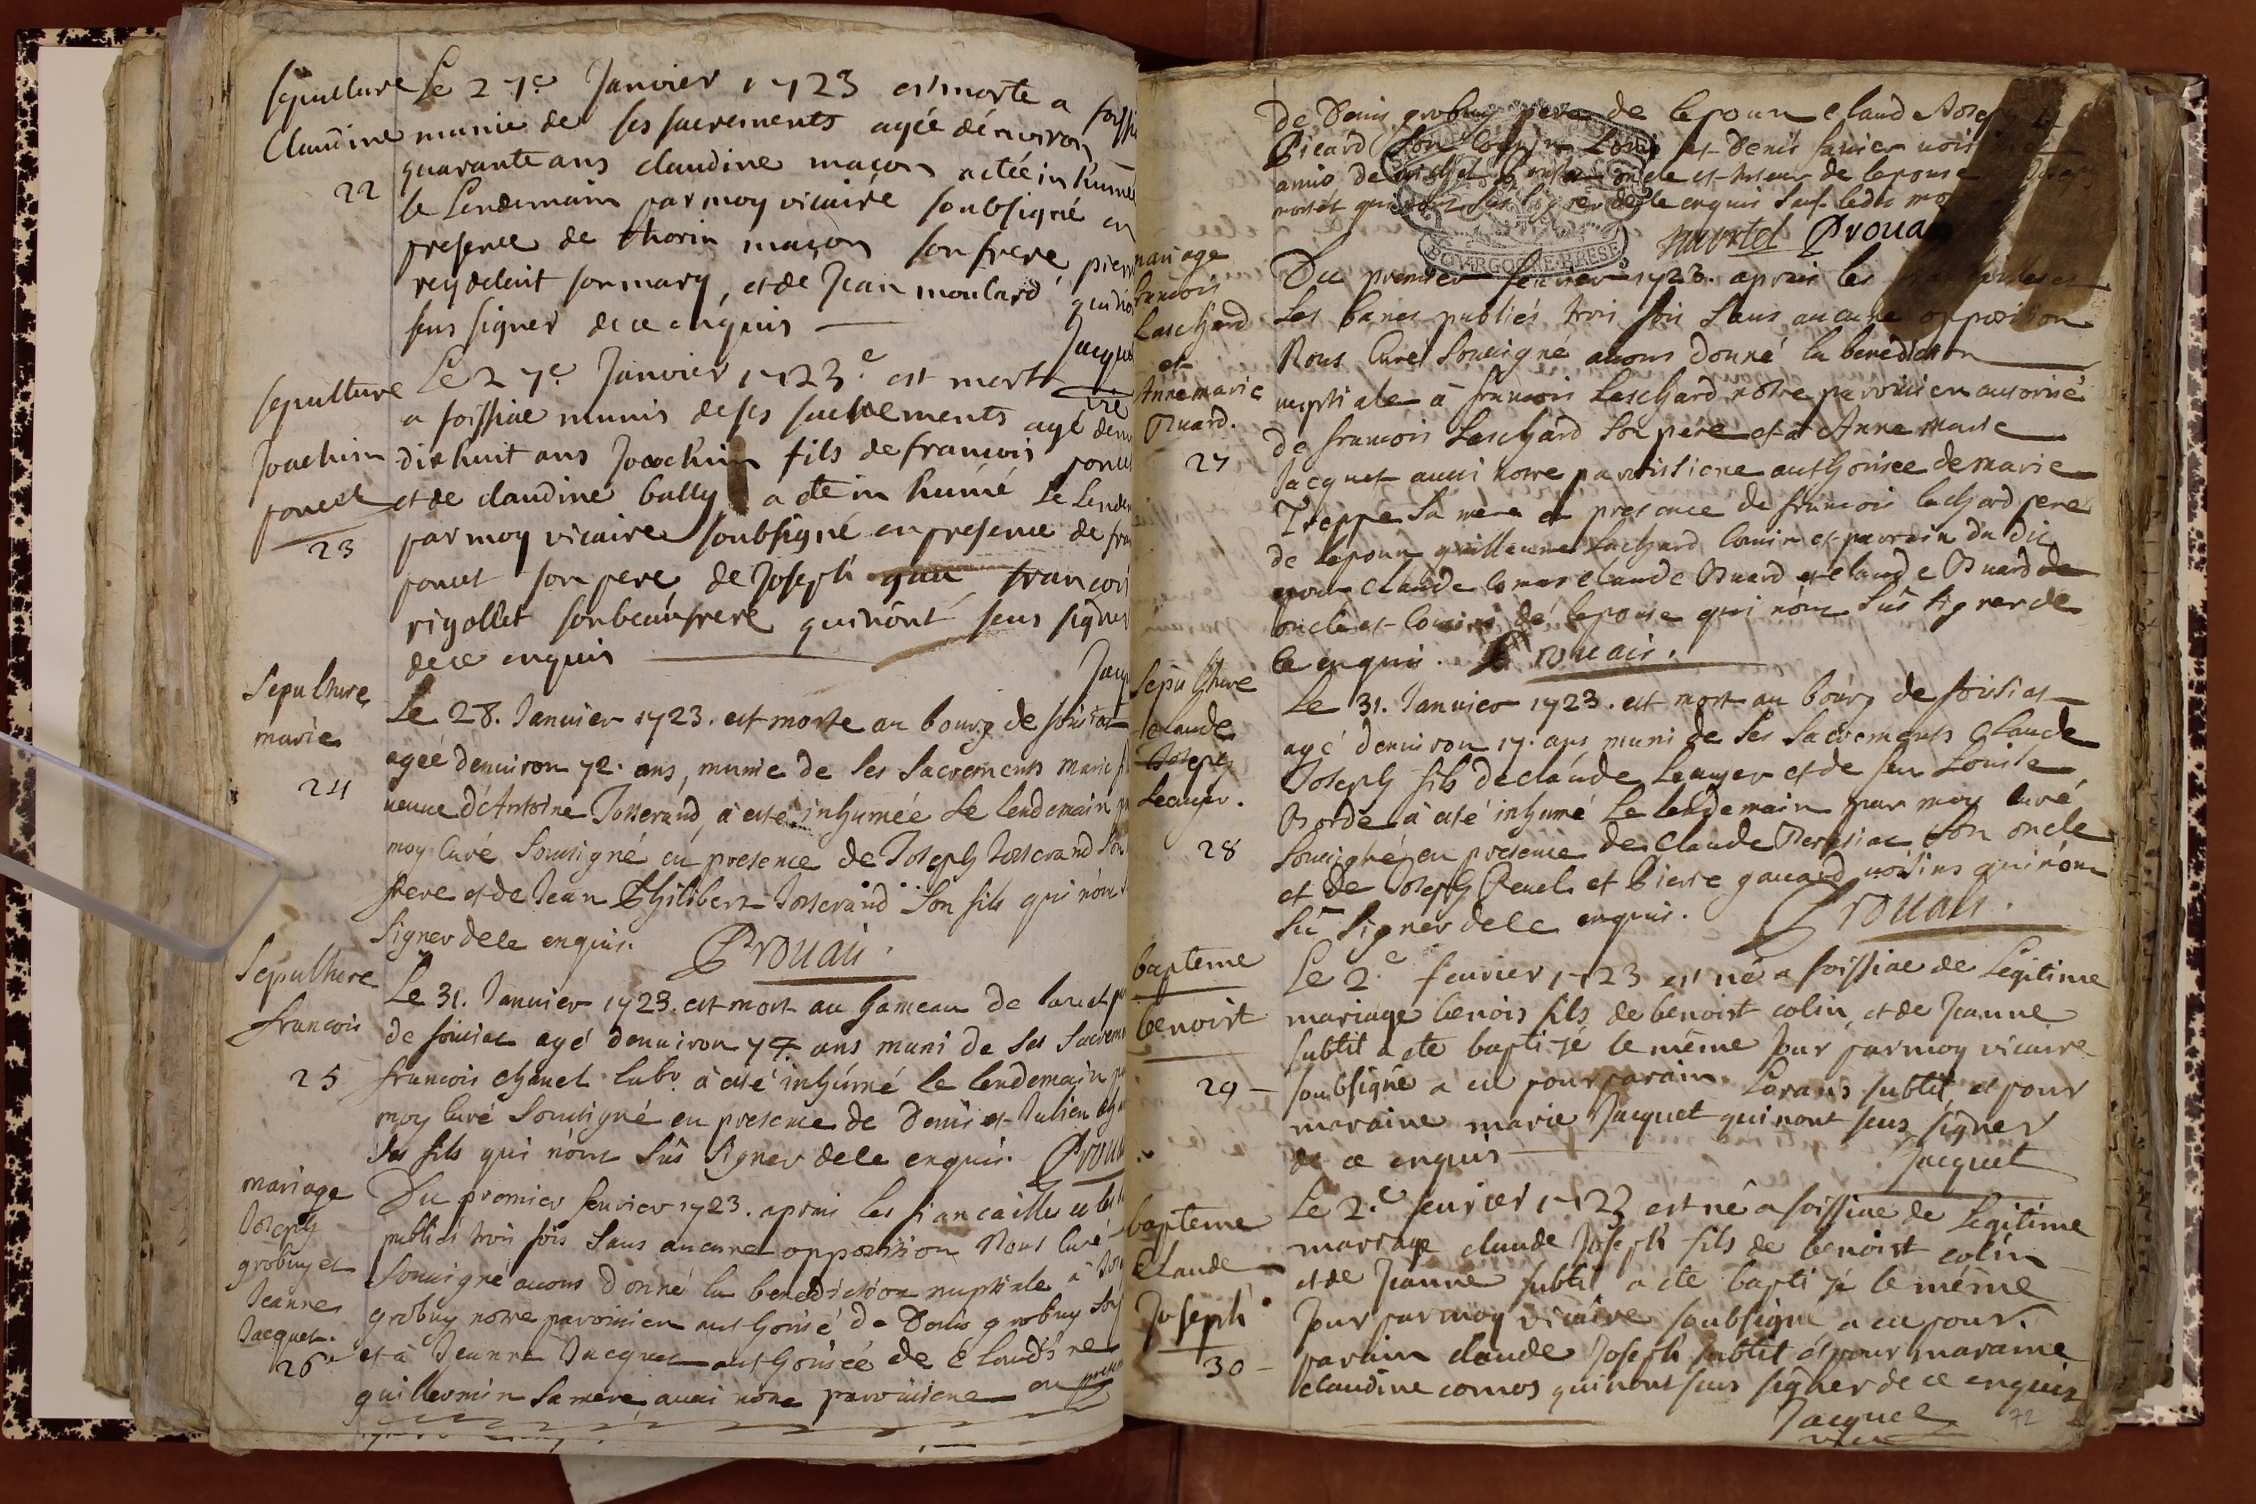 sepulture
Claudine
22
Le 27e Janvier 1723 est morte a
munie de ses sacrements agée denviron
quarante ans claudine maçon a étée inhumée
le Lendemain par moy vicaire soubsigné en
presence de thorin maçon son frere pierre
reydelait son mary, et de Jean moulard
seus signer de ce enquis
sepulture
Joachim
poncet
23
Le 27e Janvier 1723e est mort
a foissiac munis de ses sacrements agé
dixhuit ans Joachim fils de francois poncet
et de claudine bally a eté in humé Le
par moy vicaire soubsigné en presence de
poncet son pere de Joseph francois
rigollet son beaufrere quinont seus signer
de ce enquis
Sepulture
marie
24
Le 28. Janvier 1723. est morte au bourg de foissiat
agéé denviron 72. ans, munie de ses Sacrements marie
veuve d'Antoine Josserand, à esté inhumée Le lendemain
moy Curé Soussigné en presence de Joseph Josserand Son
frere et de Jean Philibert Josserand Son fils qui nont
Signer de ce enquis. Prouais.
Sepulture
francois
25
Le 31. Janvier 1723. est mort au hameau de
de foissiac agé denviron ans muni de ses
francois chanel labr. à esté inhumé le lendemain
moy Curé Soussigné en presence de Denis et Julien
Ses fils qui nont Sus Signer de ce enquis.
mariage
Joseph
grobuy et
Jeanne
Jacquet.
26
Du premier fevrier 1723. aprais les fiancailles et les
publiés trois fois Sans aucune opposition Nous Curé
Soussigné avons Donné la benediction nuptiale à
grobuy notre paroissien authorisé de Denis grobuy
et à Jeanne Jacquet authorisée de Claudine
guillermin Sa mere, aussi notre paroissiene en
de Denis grobuy pere de lepoux Claude
Picard Son et Denis
amis de oncle et de lepouse
enquis
Prouais
mariage
francois
Laschard
et
Anne marie
Buard.
27
Du premier fevrier 1723. aprais les
Les bancs publiés trois fois Sans aucune opposition
Nous Curé Soussigné avons donné la benediction
nuptiale à francois Laschard notre paroissien autorisé
de francois Laschard Son père et à Anne Marie
Jacquet aussi notre paroissiene authorisee de marie
Treppe Sa mere en presence de francois lachard pere
de lepoux guillaume Lachard Cousin et parrain du dit
epoux Claude Comas Claude Buard et Claude Buard
oncle et Cousins de lepouse qui nont Sus Signer de
Ce enquis. Prouais.
Sepulture
Claude
Joseph
Leauger.
28
Le 31. Janvier 1723. est mort au bourg de foissiat
agé denviron 17. ans muni de Ses Sacrements Claude
Joseph fils de claude Leauger et de feu Louise
Borde à esté inhumé Le lendemain par moy Curé
Soussigné en presence de Claude Son oncle
et de Joseph et Piere gavard voisins qui nont
Su Signer de ce enquis. Prouais.
bapteme
benoist
29
Le 2.e fevrier 1723 est né a foissiac de Legitime
mariage benois fils de benoist colin, et de Jeanne
subtil a ete baptisé le même Jour par moy vicaire
soubsigné a eu pour parain Lorans subtil, et pour
maraine marie Jacquet quinont seus signer
de ce enquis
Jacquet
bapteme
Claude
Joseph
30
Le 2.e fevrier 1723 est né a foissiac de Legitime
mariage claude Joseph fils de benoist colin
et de Jeanne subtil a ete baptisé le même
Jour par moy vicaire soubsigné a eu pour
parain claude Joseph subtil et pour maraine
claudine comos quinont seus signer de ce enquis
Jacquet
72